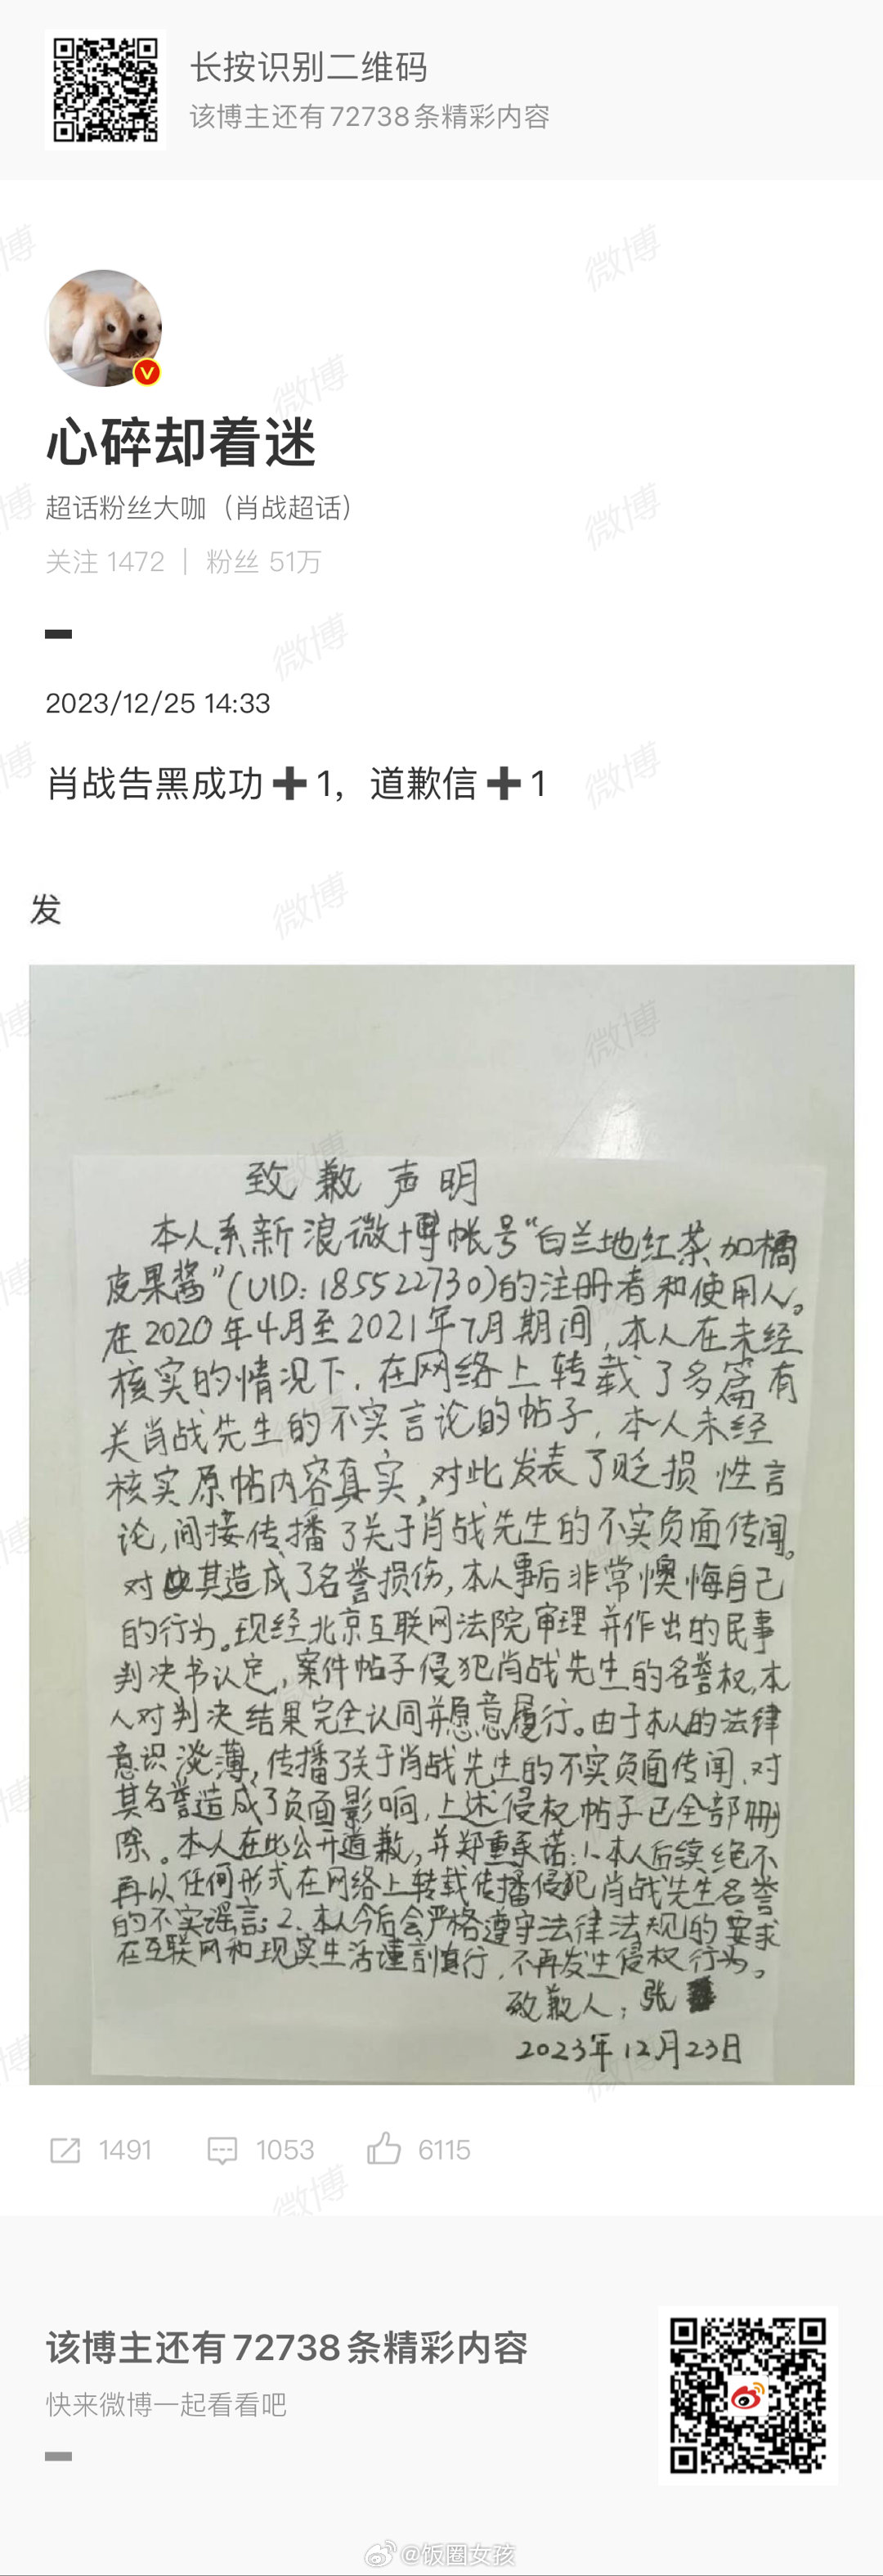 长按识别二维码
该博主还有72738条精彩内容
心碎却着迷
超话粉丝大咖（肖战超话）
关注 1472 | 粉丝 51万
2023/12/25 14:33
肖战告黑成功➕1，道歉信➕1
发
致歉声明
本人系新浪微博帐号“白兰地红茶加橘
皮果酱”(UID:185522730)的注册者和使用人。
在2020年4月至2021年7月期间,本人在未经
核实的情况下,在网络上转载了多篇有
关肖战先生的不实言论的帖子,本人未经
核实原帖内容真实,对此发表了贬损性言
论,间接传播了关于肖战先生的不实负面传闻。
对其造成了名誉损伤,本人事后非常懊悔自己
的行为。现经北京互联网法院审理并作出的民事
判决书认定,案件帖子侵犯肖战先生的名誉权,本
人对判决结果完全认同并愿意履行。由于本人的法律
意识淡薄,传播了关于肖战先生的不实负面传闻,对
其名誉造成了负面影响,上述侵权帖子已全部删
除。本人在此公开道歉,并郑重承诺:1.本人后续绝不
再以任何形式在网络上转载传播侵犯肖战先生名誉
的不实谣言;2.本人今后会严格遵守法律法规的要求
在互联网和现实生活谨言慎行,不再发生侵权行为。
致歉人:张
2023年12月23日
1491 1053 6115
该博主还有72738条精彩内容
快来微博一起看看吧
@饭圈女孩
微博